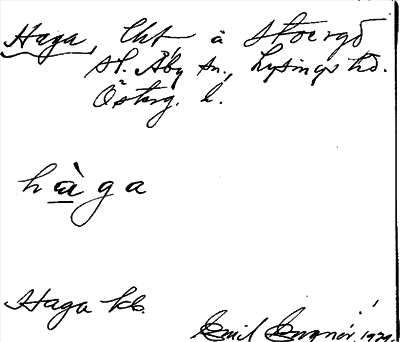 Haga, lht å Storgd
St. Åby sn., Lysings hd.
Österg. l.
hàga
Haga kb.
Emil 1929.